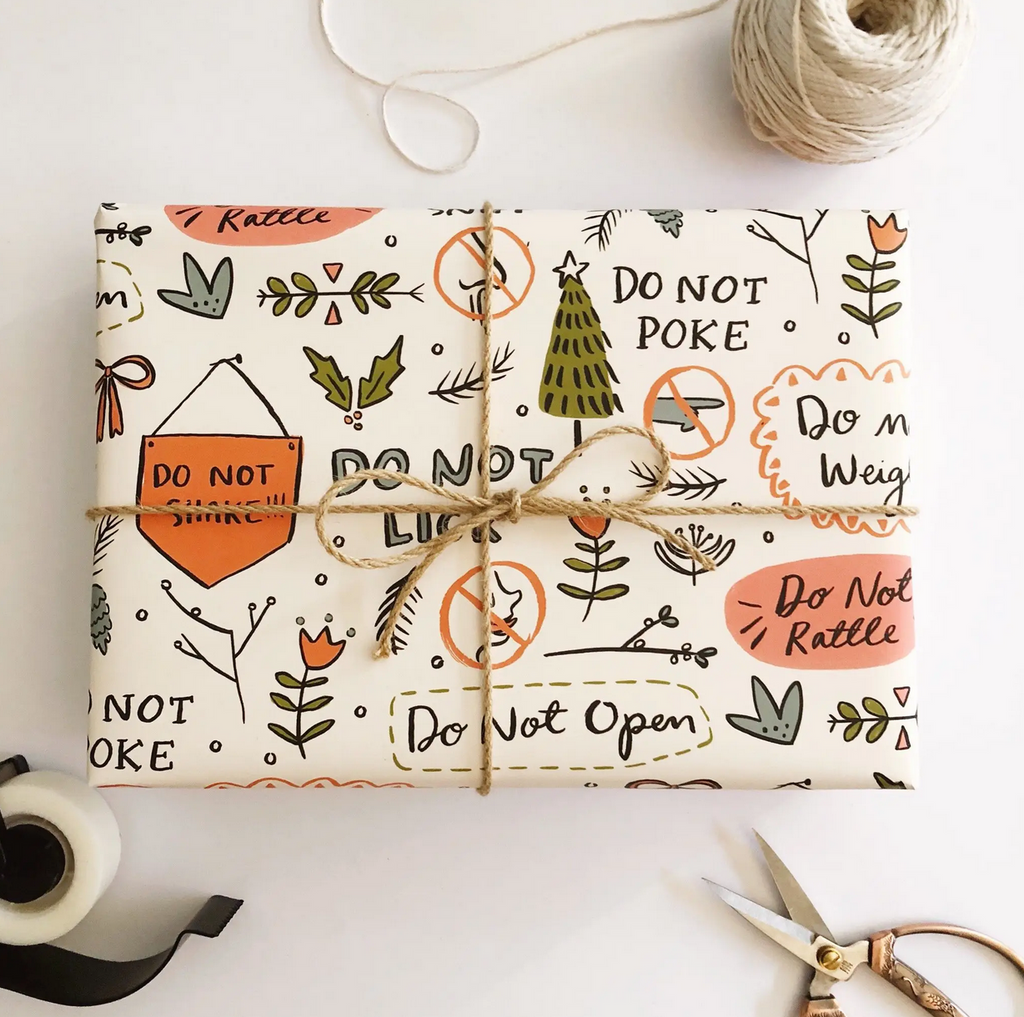 Rattle
DO NOT
POKE
en
Do n
Weig
DO NOT
SHAKE!!!
DO NOT
LICK
Do Not
Rattle
NOT
OKE
Do Not Open